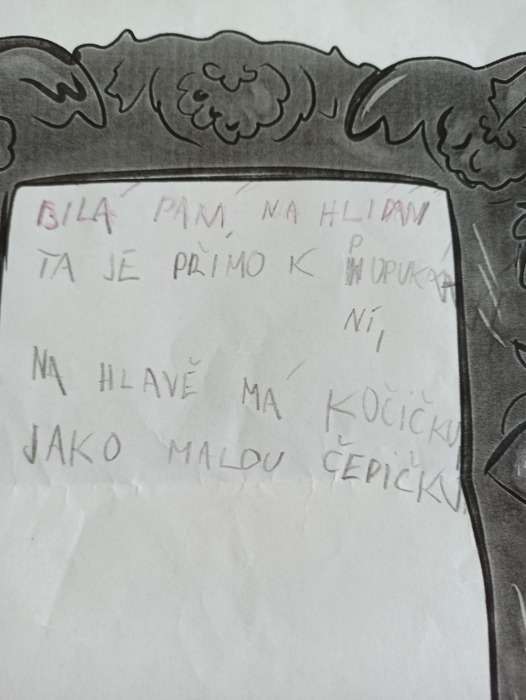 BILÁ PANÍ NA HLÍDÁNÍ
TA JE PŘÍMO K PUPUKÁ
NÍ,
NA HLAVĚ MÁ KOČIČKU
JAKO MALOU ČEPIČKU